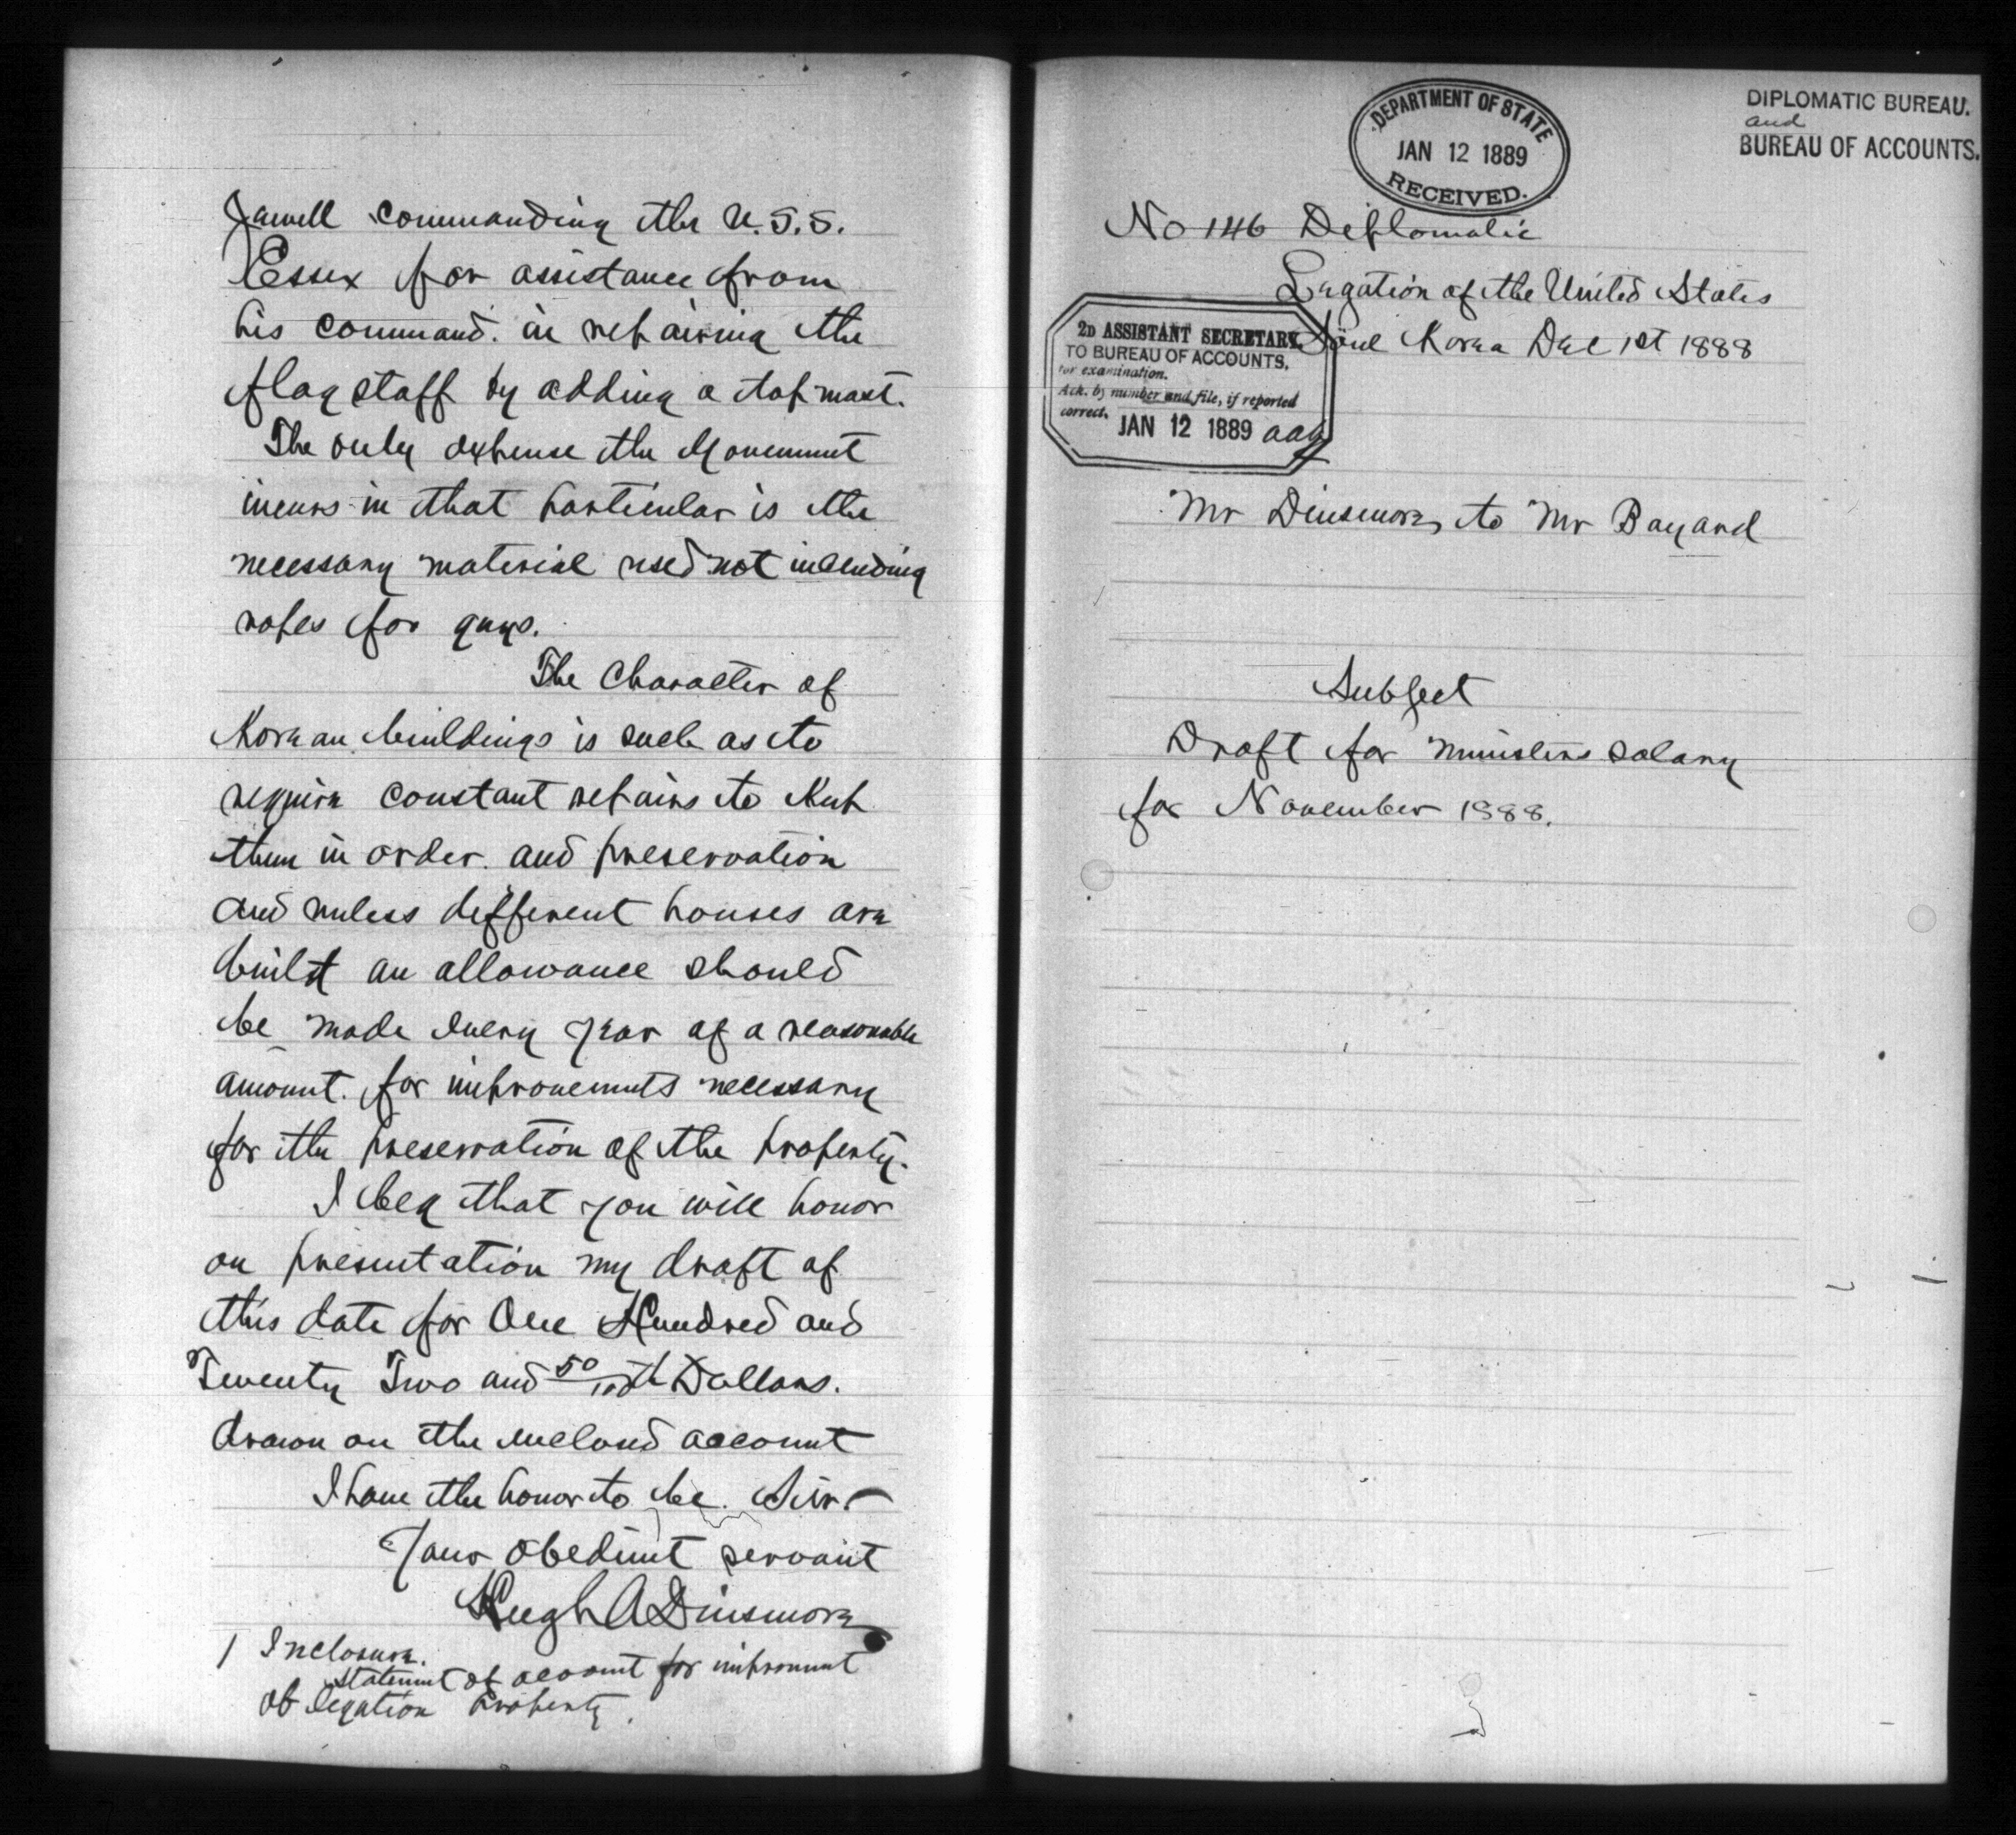 Jewell commanding the U.S.S.
Essex for assistance from
his command. in repairing the
flag staff by adding a topmast.
The only expense the Government
incurs in that particular is the
necessary material used not including
ropes for guys.
The Character of
Korean buildings is such as to
require constant repairs to keep
them in order. and preservation
and unless different houses are
built an allowance should
be made every year of a reasonable
amount. for improvements necessary
for the preservation of the property.
I beg that you will honor
on presentation my draft of
this date for One Hundred and
Twenty Two and 50/100th Dollars.
drawn on the inclosed account
I have the honor to be. Sir.
Your obedient servant
Hugh A Dinsmore
1 Inclosure.
Statement of account for improvement
of legation property.
DEPARTMENT OF STATE
JAN 12 1889
RECEIVED.
DIPLOMATIC BUREAU.
and
BUREAU OF ACCOUNTS.
No 146 Diplomatic
Legation of the United States
Söul Korea Dec 1st 1888
2D ASSISTANT SECRETARY
TO BUREAU OF ACCOUNTS,
for examination.
Ack. by number and file, if reported
correct.
JAN 12 1889 aaa
Mr Dinsmore, to Mr Bayard
Subject
Draft for ministers salary
for November 1888.